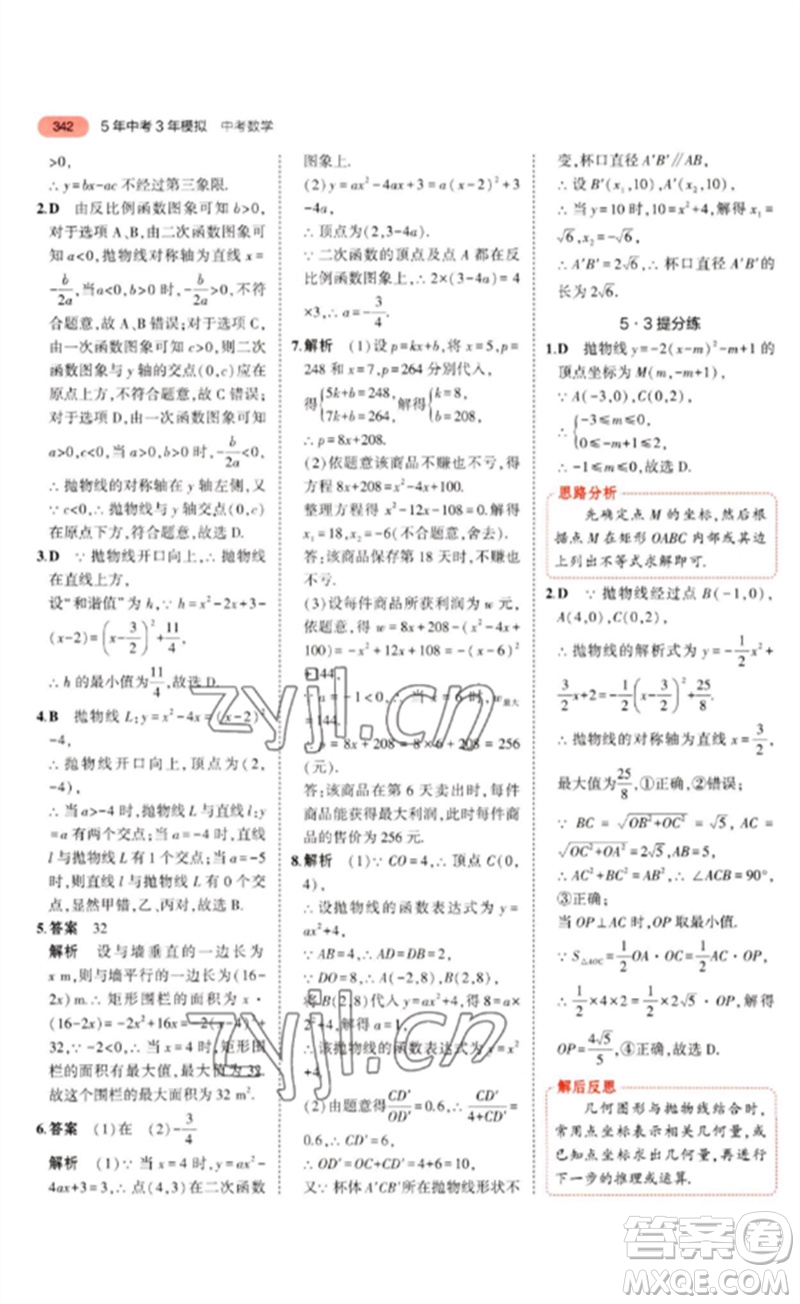 342 5年中考3年模拟 中考数学
>0,
∴ y=bx-ac 不经过第三象限.
2.D 由反比例函数图象可知 b>0,
对于选项 A、B,由二次函数图象可
知 a<0,抛物线对称轴为直线 x=
-b/2a,当 a<0,b>0 时,-b/2a>0,不符
合题意,故 A、B 错误;对于选项 C,
由一次函数图象可知 c<0,而二次
函数图象与 y 轴的交点(0,c)应在
原点上方,不符合题意,故 C 错误;
对于选项 D,由二次函数图象可知
a>0,c<0,当 a>0,b>0 时,-b/2a<0,
∴ 抛物线的对称轴在 y 轴左侧,又
∵ c<0,∴ 抛物线与 y 轴交点(0,c)
在原点下方,符合题意,故选 D.
3.D ∵ 抛物线开口向上,∴ 抛物线
在直线上方,
设“和谐值”为 h,∵ h=x²-2x+3-
(x-2)=(x-3/2)²+11/4,
∴ h 的最小值为11/4,故选 D.
4.B 抛物线 L:y=x²-4x=(x-2)²
-4,
∴ 抛物线开口向上,顶点为(2,
-4),
∴ 当 a>-4 时,抛物线 L 与直线 l:y
=a 有两个交点;当 a=-4 时,直线
l 与抛物线 L 有 1 个交点;当 a=-5
时,直线 l 与抛物线 L 有 0 个交
点,显然甲错,乙、丙对,故选 B.
5.答案 32
解析 设与墙垂直的一边长为
x m,则与墙平行的一边长为(16-
2x)m.∴ 矩形围栏的面积为 x·
(16-2x)=-2x²+16x=-2(x-4)²+
32,∵ -2<0,∴ 当 x=4 时,矩形围
栏有最大面积,最大面积为 32.
故这个围栏的最大面积为 32 m².
6.答案 (1)在 (2)-3/4
解析 (1)∵ 当 x=4 时,y=ax²-
4ax+3=3,∴ 点(4,3)在二次函数
图象上.
(2)y=ax²-4ax+3=a(x-2)²+3
-4a,
∴ 顶点为(2,3-4a).
∵ 二次函数的顶点及点 A 都在反
比例函数图象上,∴ 2×(3-4a)=4
×3,∴ a=-3/4.
7.解析 (1)设 p=kx+b,将 x=5,p=
248 和 x=7,p=264 分别代入,
得{5k+b=248,7k+b=264,解得{k=8,b=208,
∴ p=8x+208.
(2)依题意该商品不赚也不亏,得
方程 8x+208=x²-4x+100,
整理方程得 x²-12x-108=0,解得
x₁=18,x₂=-6(不合题意,舍去).
答:该商品保存第 18 天时,不赚也不
亏.
(3)设每件商品所获利润为 w 元,
依题意,得 w=8x+208-(x²-4x+
100)=-x²+12x+108=-(x-6)²
+144,
∵ a=-1<0,∴ 当 x=6 时,w最大
=144,
∴ p=8x+208=8×6+208=256
(元).
答:该商品在第 6 天卖出时,每件
商品能获得最大利润,此时每件商
品的售价为 256 元.
8.解析 (1)∵ CO=4,∴ 顶点 C(0,
4),
∴ 设抛物线的函数表达式为 y=
ax²+4,
∵ AB=4,∴ AD=DB=2,
∵ DO=8,∴ A(-2,8),B(2,8),
将 B(2,8)代入 y=ax²+4,得 8=a×
2²+4,解得 a=1,
∴ 该抛物线的函数表达式为 y=x²
+4.
(2)由题意得CD'/OD'=0.6,∴ CD'/(4+CD')=
0.6,∴ CD'=6,
∴ OD'=OC+CD'=4+6=10,
又∵ 杯体 A'CB'所在抛物线形状不
变,杯口直径 A'B'∥AB,
∴ 设 B'(x₁,10),A'(x₂,10),
∴ 当 y=10 时,10=x²+4,解得 x₁=
√6,x₂=-√6,
∴ A'B'=2√6,∴ 杯口直径 A'B'的
长为 2√6.
5·3提分练
1.D 抛物线 y=-2(x-m)²-m+1 的
顶点坐标为 M(m,-m+1),
∵ A(-3,0),C(0,2),
∴ {-3≤m≤0,0≤-m+1≤2,
∴ -1≤m≤0,故选 D.
思路分析
先确定点 M 的坐标,然后根
据点 M 在矩形 OABC 内部或其边
上列出不等式求解即可.
2.D ∵ 抛物线经过点 B(-1,0),
A(4,0),C(0,2),
∴ 抛物线的解析式为 y=-1/2x²+
3/2x+2=-1/2(x-3/2)²+25/8.
∴ 抛物线的对称轴为直线 x=3/2,
最大值为25/8,①正确,②错误;
∵ BC=√(OB²+OC²)=√5,AC=
√(OC²+OA²)=2√5,AB=5,
∴ AC²+BC²=AB²,∴ ∠ACB=90°,
③正确;
当 OP⊥AC 时,OP 取最小值.
∵ S△AOC=1/2OA·OC=1/2AC·OP,
∴ 1/2×4×2=1/2×2√5·OP,解得
OP=4√5/5,④正确,故选 D.
解后反思
几何图形与抛物线结合时,
常用点坐标表示相关几何量,或
已知点坐标求出几何量,再进行
下一步的推理或运算.
zyjl.cn
zyjl.cn
答案圈
MXQE.COM